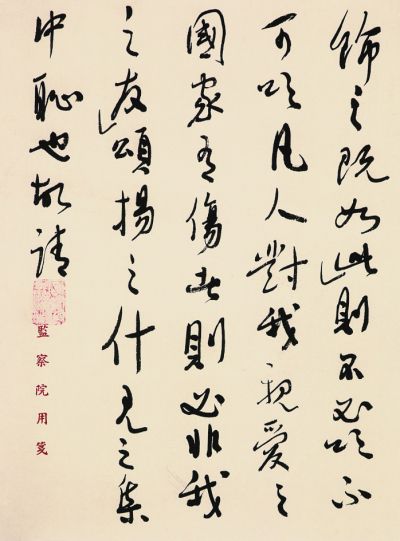 之既如此則不必吟不
可吟凡人對我親愛之
國家有傷者則必非我
之友頌揚之什見之集
中恥也敬請
監察院用箋